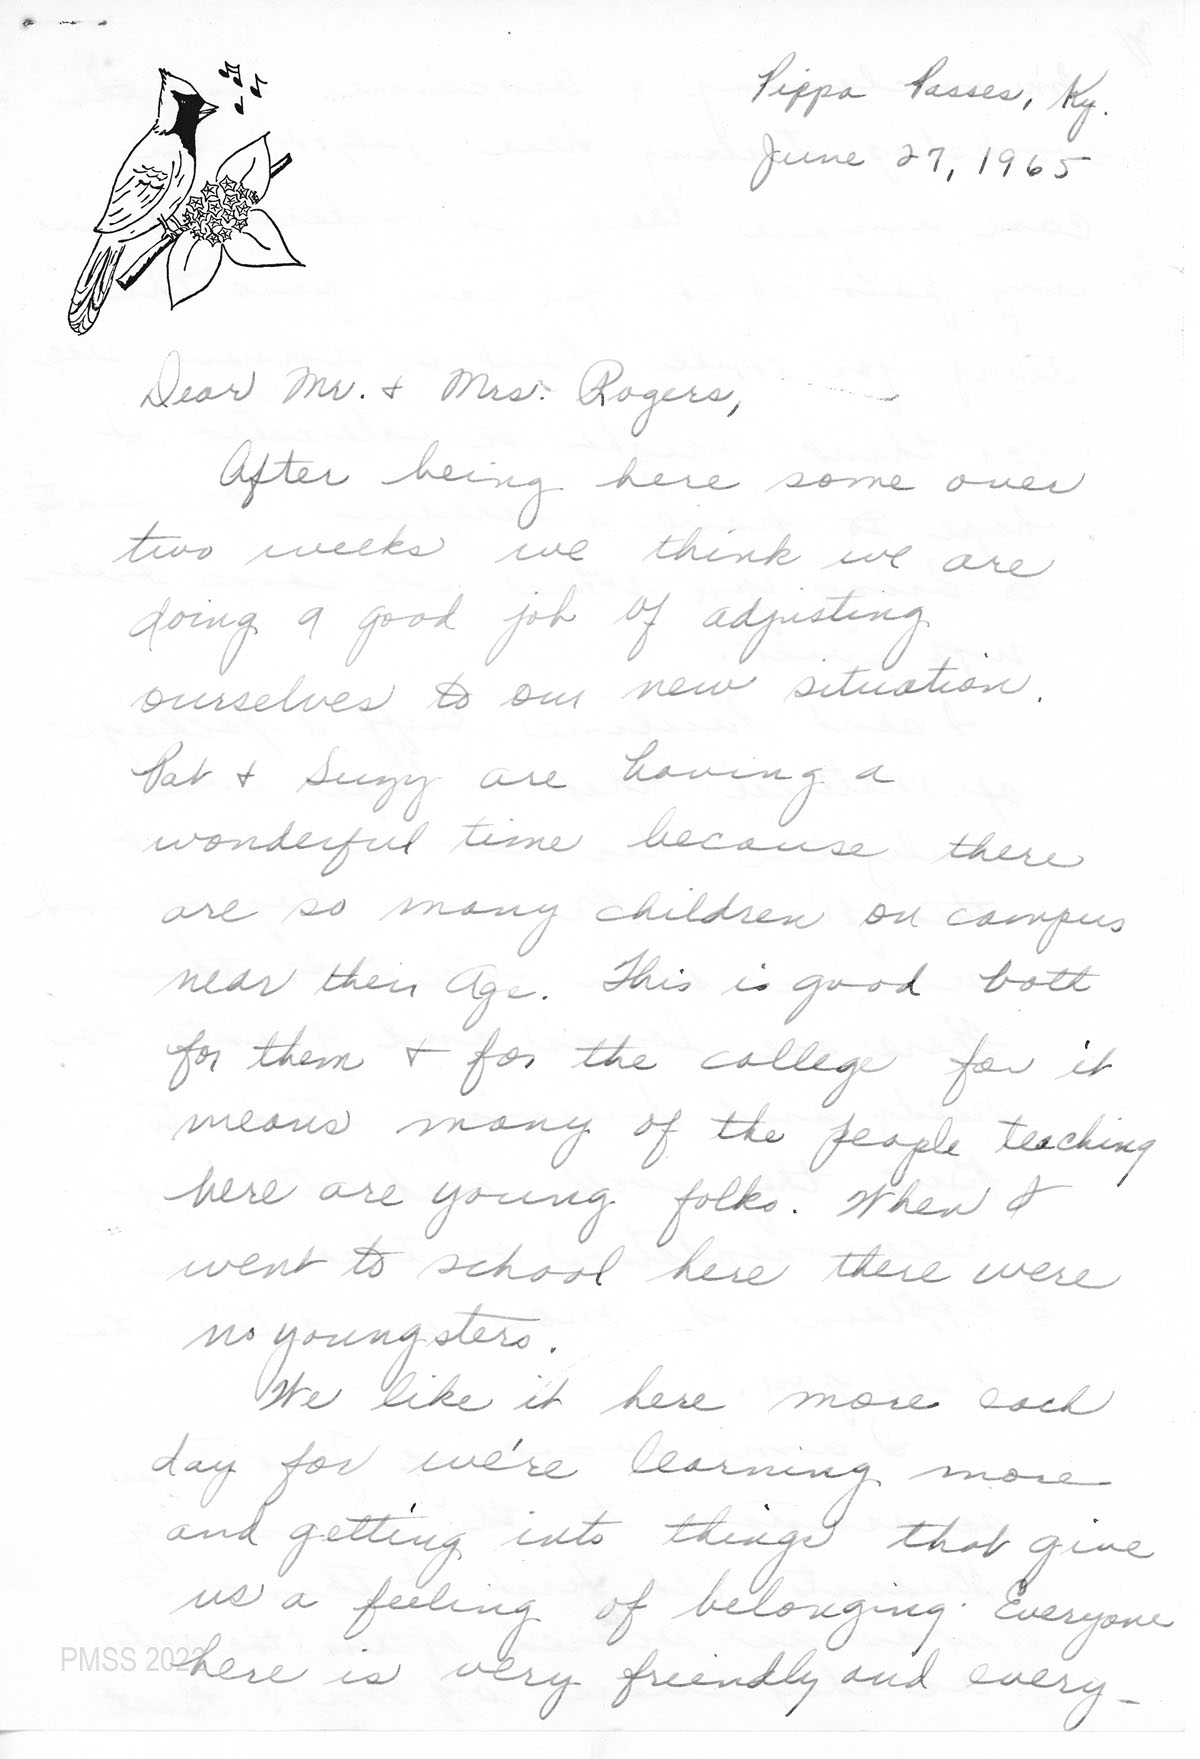 Pippa Passes, Ky.
June 27, 1965
Dear Mr. & Mrs. Rogers,
After being here some over
two weeks we think we are
doing a good job of adjusting
ourselves to our new situation.
Pat & Suzy are having a
wonderful time because there
are so many children on campus
near their age. This is good both
for them & for the college for it
means many of the people teaching
here are young folks. When I
went to school here there were
no youngsters.
We like it here more each
day for we're learning more
and getting into things that give
us a feeling of belonging. Everyone
here is very friendly and every-
PMSS 2022